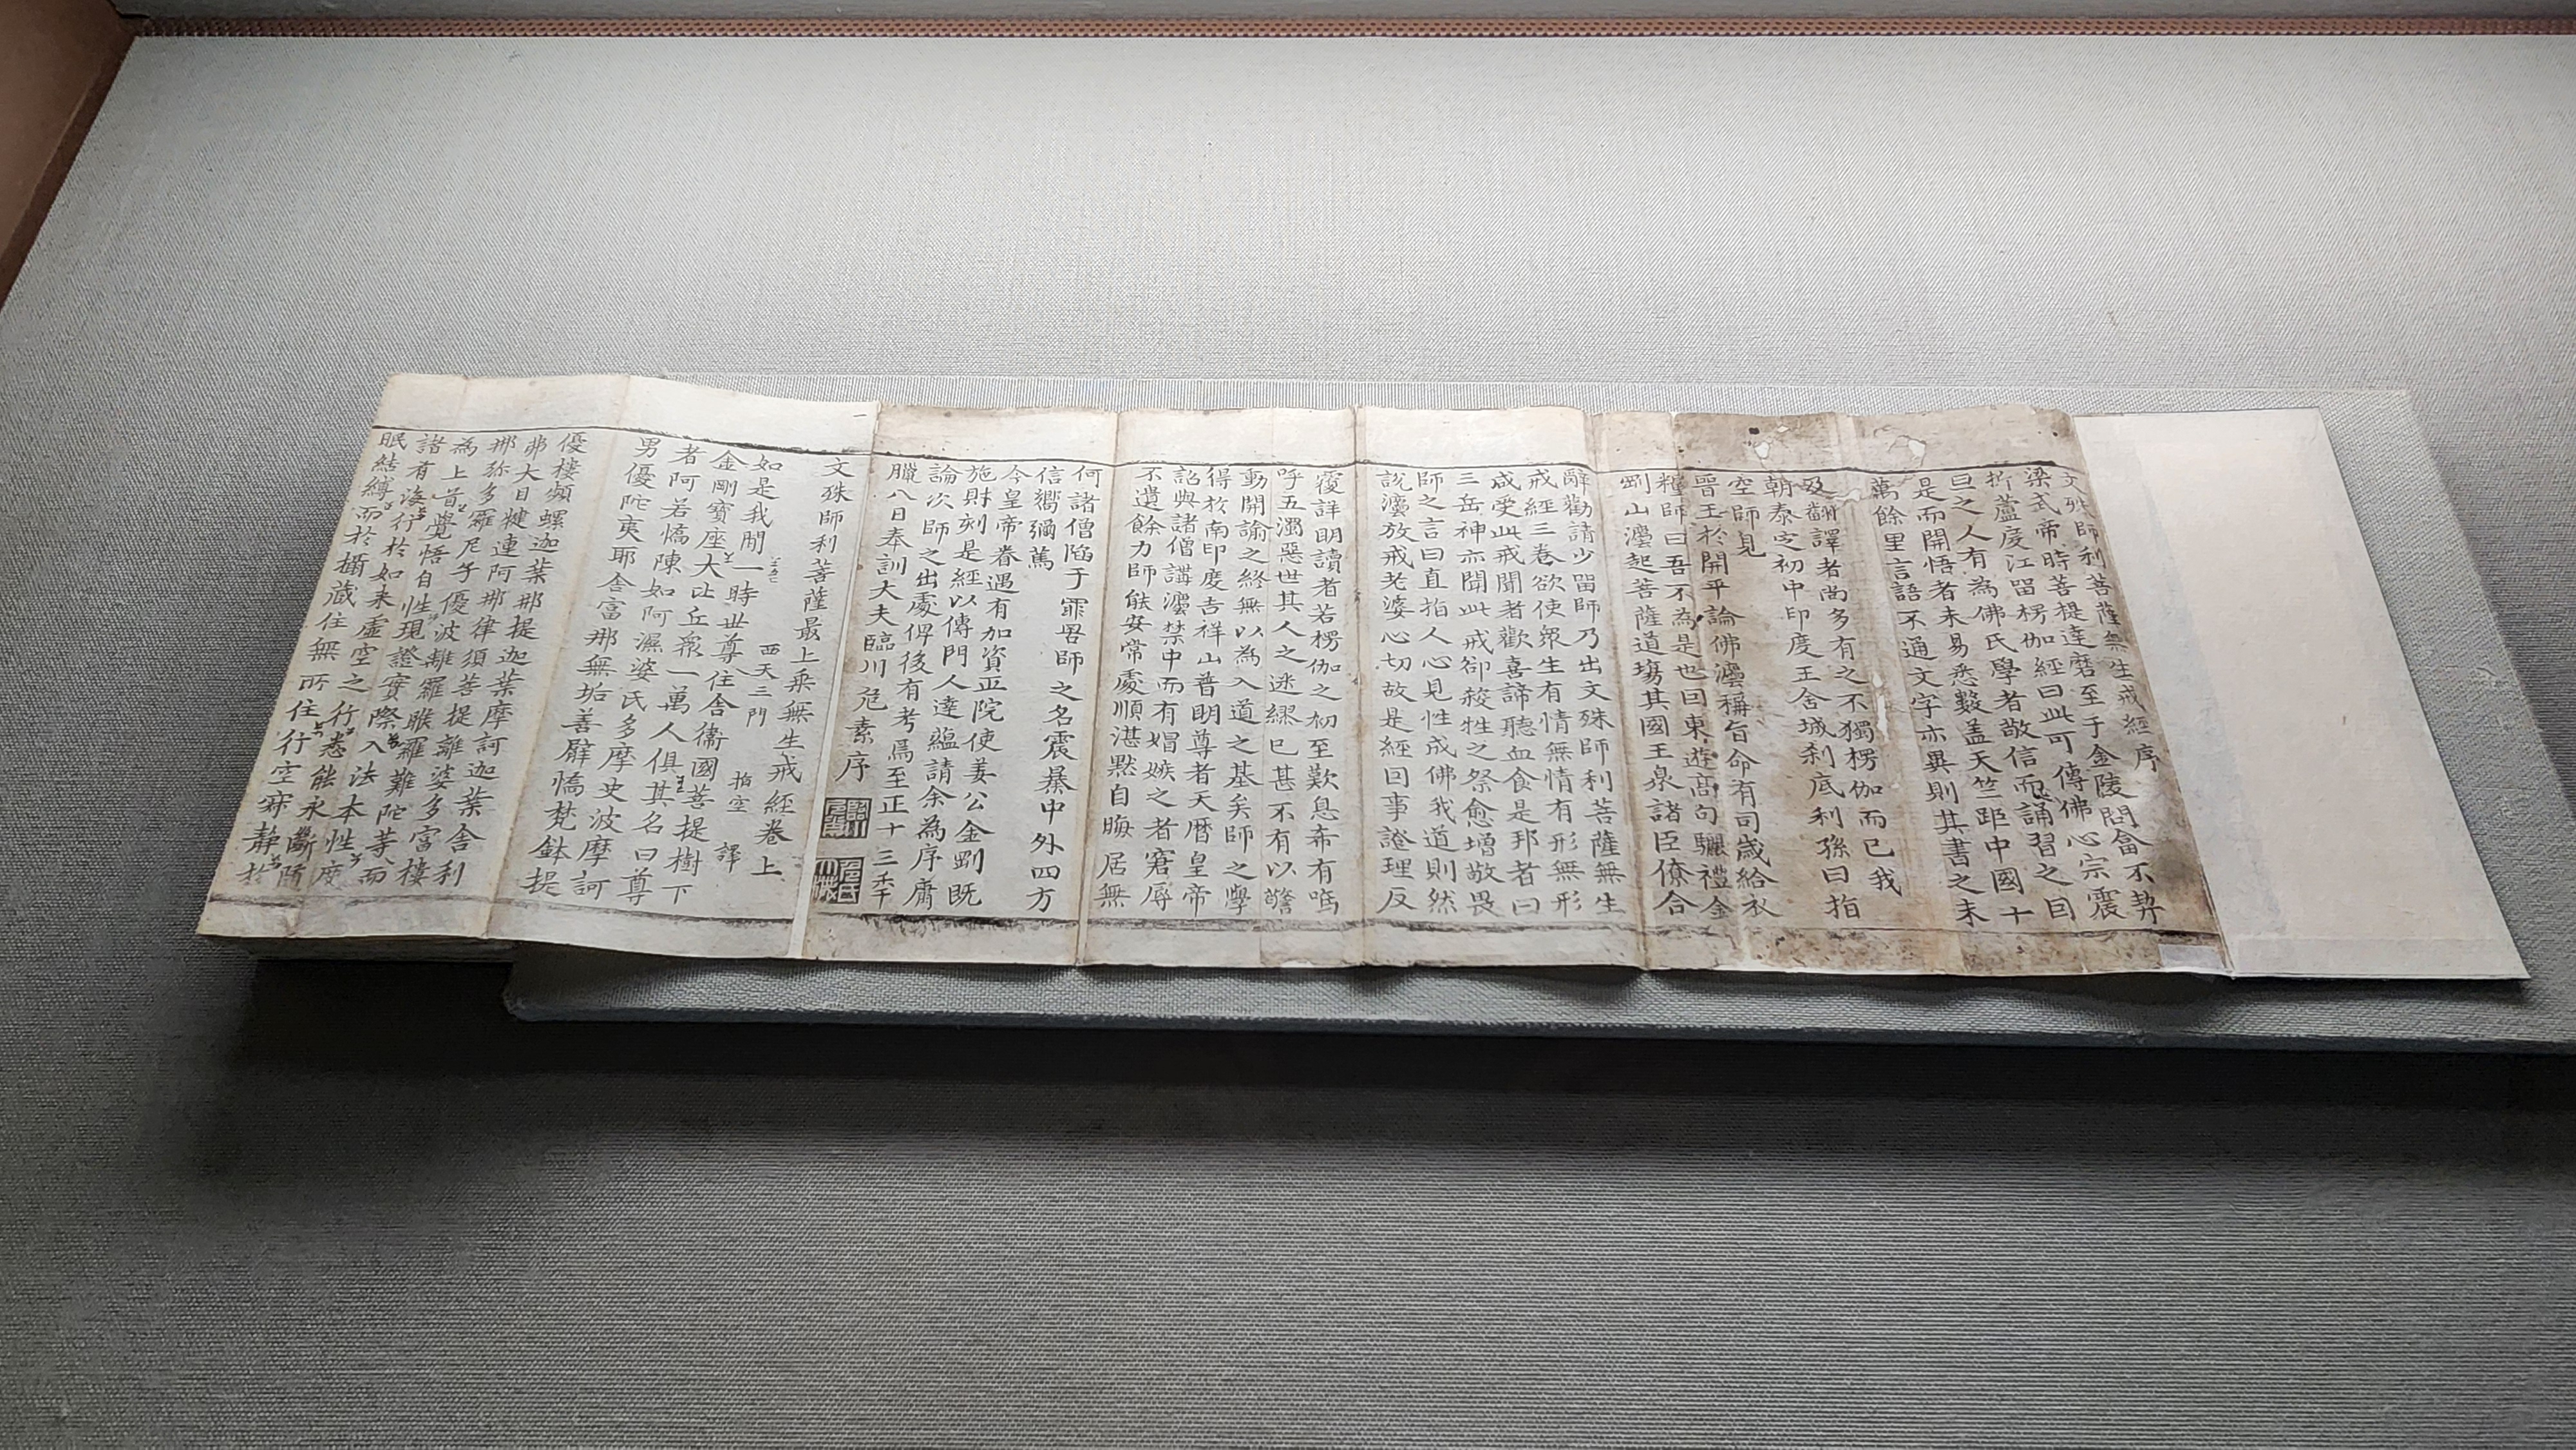 文殊師利菩薩無生戒經序
梁武帝時菩提達磨至于金陵問答不契
折蘆度江留楞伽經曰此可傳佛心宗震
旦之人有為佛氏學者敬信而誦習之因
是而開悟者未易悉數盖天竺距中國十
萬餘里言語不通文字亦異則其書之未
及翻譯者尚多有之不獨楞伽而已我
朝泰定初中印度王舍城刹底利孫曰指
空師見
晉王於開平論佛灋稱旨命有司歲給衣
粮師曰吾不為是也因東遊高句驪禮金
剛山灋起菩薩道場其國王泉諸臣僚合
辭勸請少留師乃出文殊師利菩薩無生
戒經三卷欲使衆生有情無情有形無形
咸受此戒聞者歡喜諦聽血食是邦者曰
三岳神亦聞此戒却殺牲之祭愈增敬畏
師之言曰直指人心見性成佛我道則然
說灋放戒老婆心切故是經因事證理反
覆詳明讀者若楞伽之初至歎息希有嗚
呼五濁惡世其人之迷繆已甚不有以警
動開諭之終無以為入道之基矣師之學
得於南印度吉祥山普明尊者天曆皇帝
詔與諸僧講灋禁中而有娼嫉之者窘辱
不遺餘力師能安常處順湛默自晦居無
何諸僧陷于罪咎師之名震暴中外四方
信嚮彌篤
今皇帝眷遇有加資正院使姜公金剛既
施財刻是經以傳門人達蘊請余為序庸
論次師之出處俾後有考焉至正十三年
臘八日奉訓大夫臨川危素序
文殊師利菩薩最上乘無生戒經卷上
西天三門 指空 譯
如是我聞一時世尊住舍衞國菩提樹下
金剛寶座大比丘衆一萬人俱其名曰尊
者阿若憍陳如阿濕婆氏多摩史波摩訶
男優陀夷耶舍富那無垢善臂憍梵鉢提
優樓頻螺迦葉那提迦葉摩訶迦葉舍利
弗大目犍連阿那律須菩提離婆多富樓
那弥多羅尼子優波離羅睺羅難陀等而
為上首覺悟自性現證實際入法本性度
諸有海行於如来虛空之行悉能永斷隨
眠結縛而於攝藏住無所住行空寂静